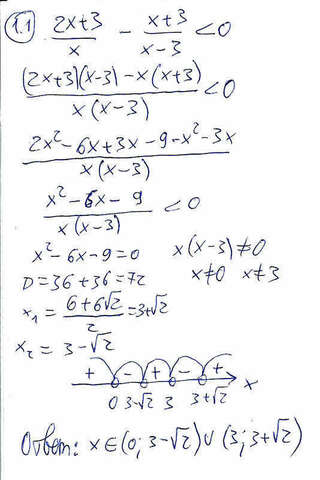 1.1 (2x+3)/x − (x+3)/(x−3) < 0
((2x+3)(x−3)−x(x+3))/(x(x−3)) < 0
(2x²−6x+3x−9−x²−3x)/(x(x−3))
(x²−6x−9)/(x(x−3)) < 0
x²−6x−9=0 x(x−3)≠0
D=36+36=72 x≠0 x≠3
x₁=(6+6√2)/2=3+√2
x₂=3−√2
+ − + − + x
0 3−√2 3 3+√2
Ответ: x∈(0; 3−√2)∪(3; 3+√2)